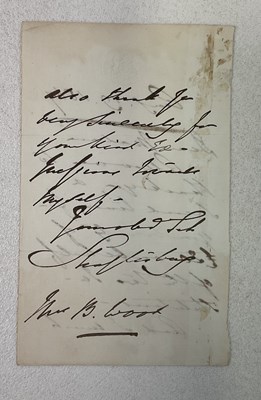 also thank you
very sincerely for
your kind ex-
pressions towards
myself -
Shaftesbury
Mrs B. Wood